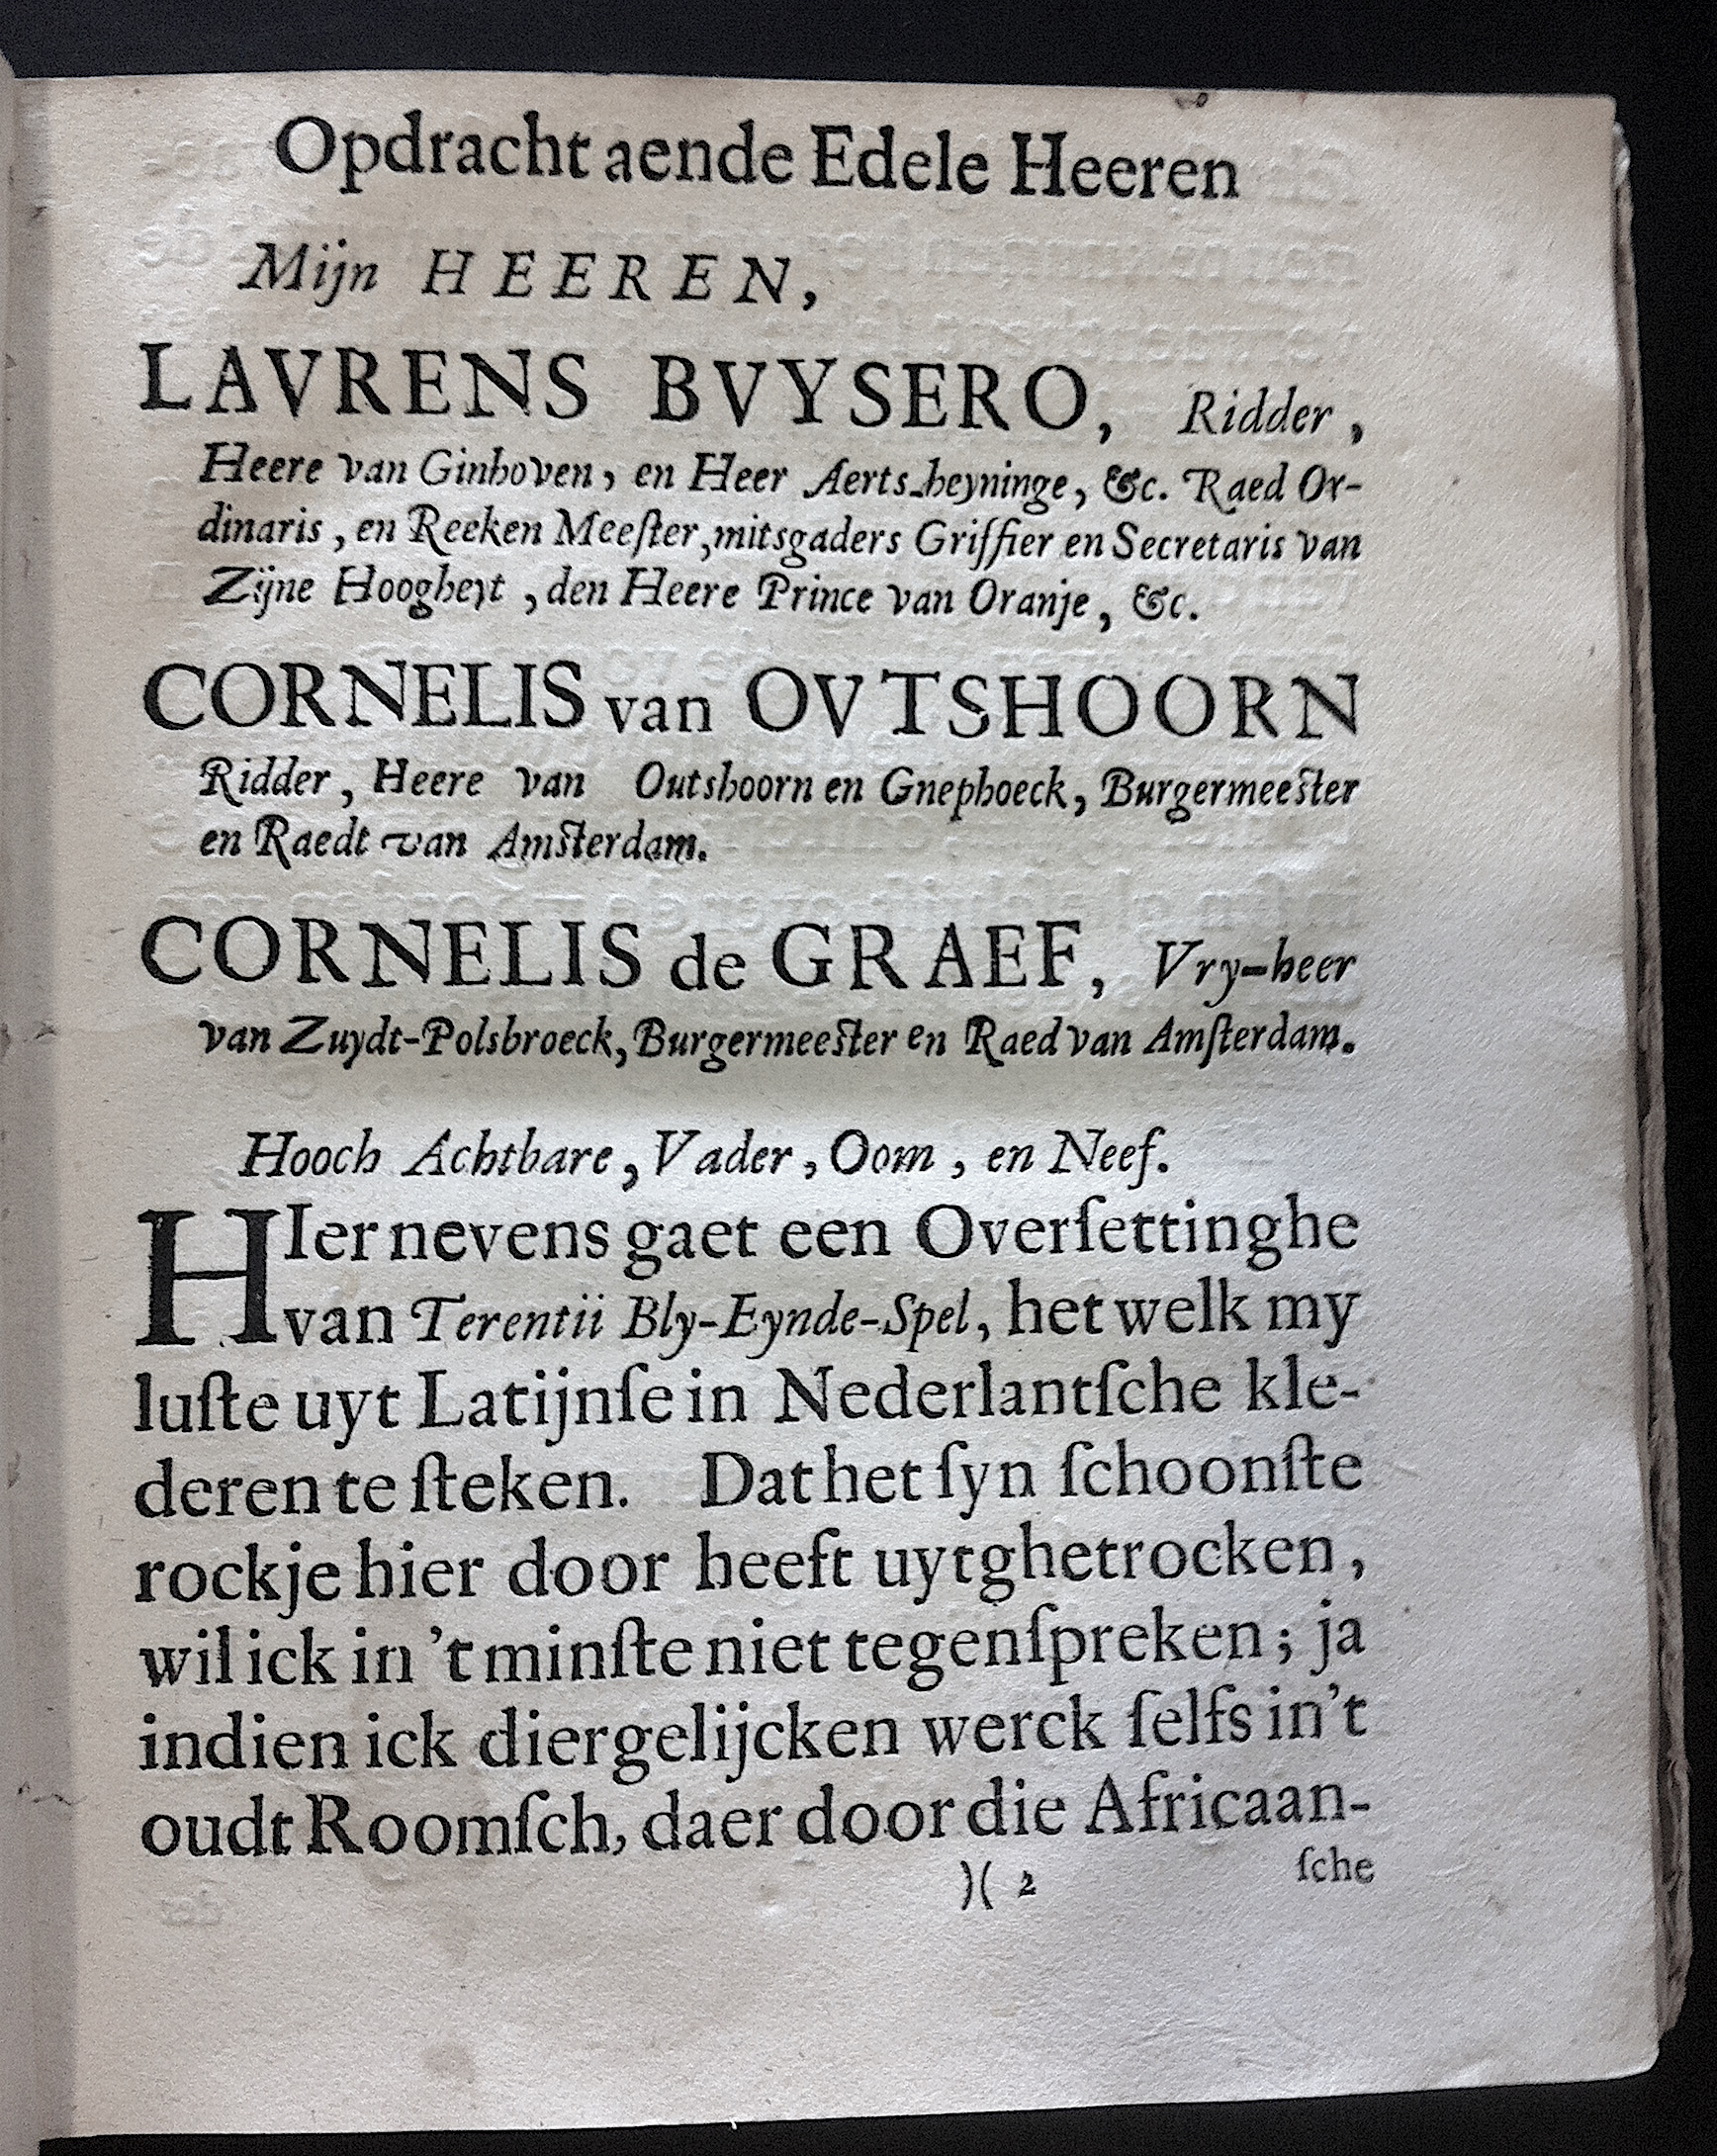 Opdracht aende Edele Heeren
Mijn HEEREN,
LAVRENS BVYSERO, Ridder,
Heere van Ginhoven, en Heer Aertsheyninge, &c. Raed Or-
dinaris, en Reeken Meeſter, mitsgaders Griffier en Secretaris van
Zijne Hoogheyt, den Heere Prince van Oranje, &c.
CORNELIS van OVTSHOORN
Ridder, Heere van Outshoorn en Gnephoeck, Burgermeeſter
en Raedt van Amſterdam.
CORNELIS de GRAEF, Vry-heer
van Zuydt-Polsbroeck, Burgermeeſter en Raed van Amſterdam.
Hooch Achtbare, Vader, Oom, en Neef.
HIer nevens gaet een Overſettinghe
van Terentii Bly-Eynde-Spel, het welk my
luſte uyt Latijnſe in Nederlantſche kle-
deren te ſteken. Dat het ſyn ſchoonſte
rockje hier door heeft uytghetrocken,
wil ick in 't minſte niet tegenſpreken; ja
indien ick diergelijcken werck ſelfs in't
oudt Roomſch, daer door die Africaan-
)( 2 ſche